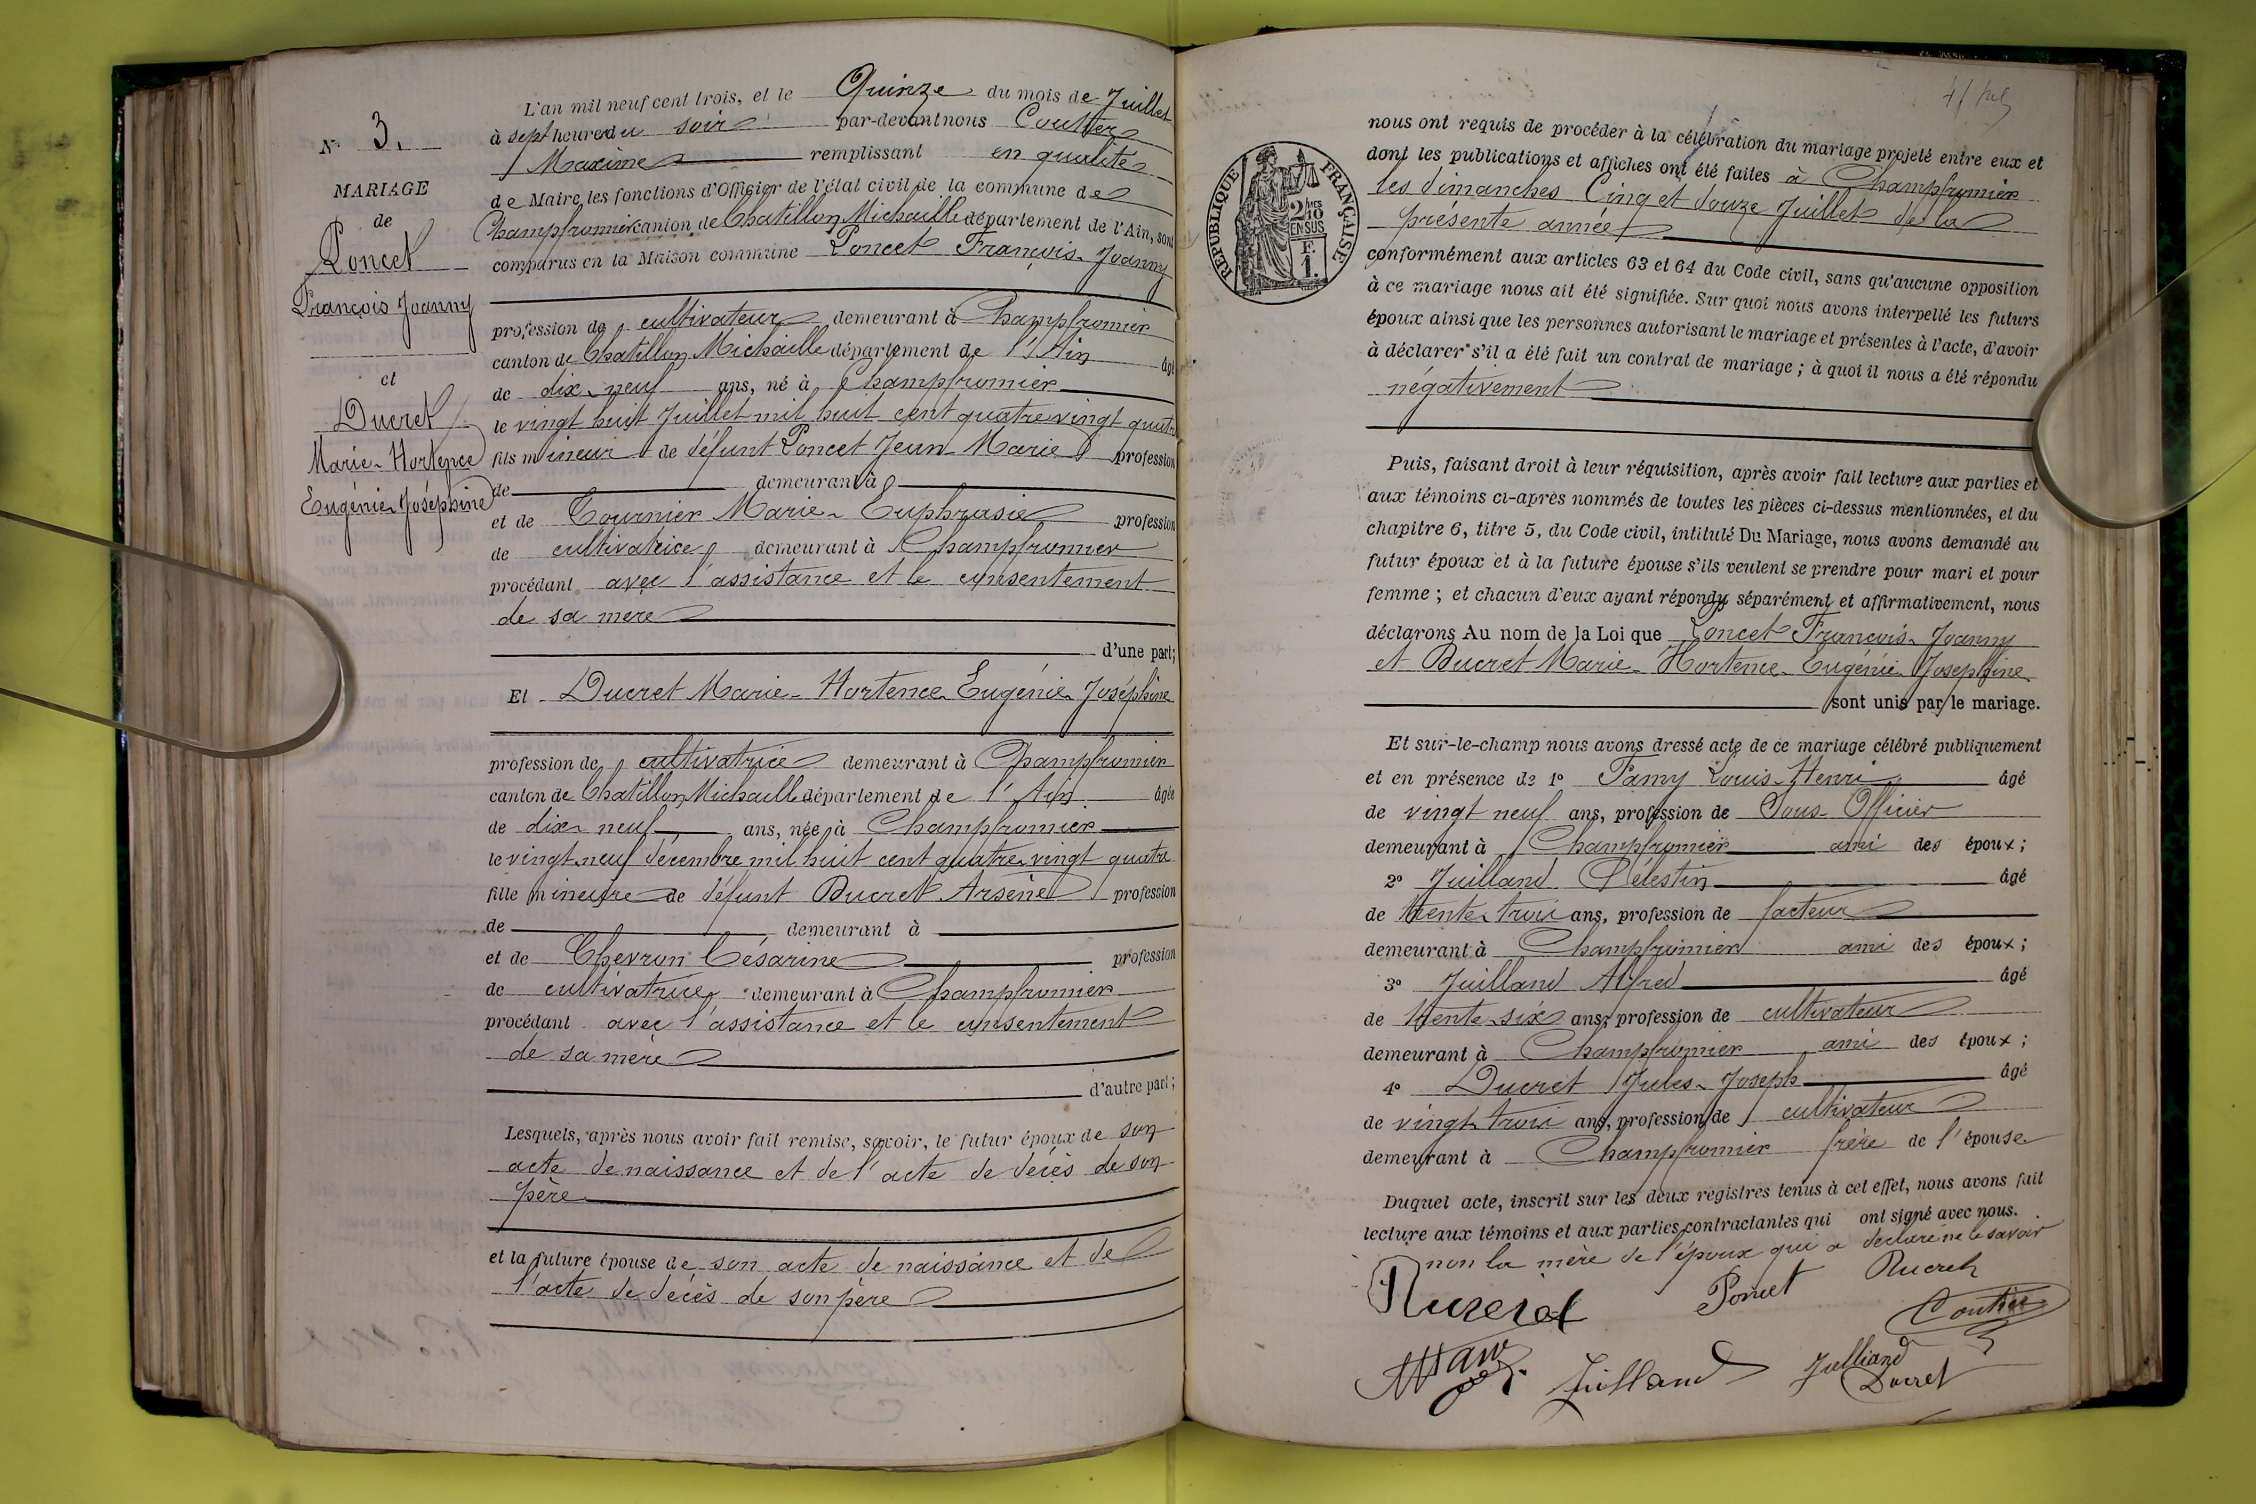 N° 3.
MARIAGE
de
Poncet
François Joanny
et
Ducret
Marie-Hortence
Eugénie Joséphine
L'an mil neuf cent trois, et le Quinze du mois de Juillet
à sept heures du soir par-devant nous Coutier
Maxime remplissant en qualité
de Maire les fonctions d'Officier de l'état civil de la commune de
Champfromier canton de Chatillon Michaille département de l'Ain, sont
comparus en la Maison commune Poncet François-Joanny
profession de cultivateur demeurant à Champfromier
canton de Chatillon Michaille département de l'Ain âgé
de dix-neuf ans, né à Champfromier
le vingt huit Juillet mil huit cent quatre vingt quatre
fils mineur de défunt Poncet Jean-Marie profession
de demeurant à
et de Tournier Marie-Euphrasie profession
de cultivatrice demeurant à Champfromier
procédant avec l'assistance et le consentement
de sa mère
d'une part;
Et Ducret Marie-Hortence-Eugénie-Joséphine
profession de cultivatrice demeurant à Champfromier
canton de Chatillon Michaille département de l'Ain âgée
de dix-neuf ans, née à Champfromier
le vingt neuf décembre mil huit cent quatre-vingt quatre
fille mineure de défunt Ducret Arsène profession
de demeurant à
et de Chevron Césarine profession
de cultivatrice demeurant à Champfromier
procédant avec l'assistance et le consentement
de sa mère
d'autre part;
Lesquels, après nous avoir fait remise, savoir, le futur époux de son
acte de naissance et de l'acte de décès de son
père
et la future épouse de son acte de naissance et de
l'acte de décès de son père
RÉPUBLIQUE FRANÇAISE
2 fres
/10
EN SUS
E.
1.
nous ont requis de procéder à la célébration du mariage projeté entre eux et
dont les publications et affiches ont été faites à Champfromier
les dimanches Cinq et douze Juillet de la
présente année
conformément aux articles 63 et 64 du Code civil, sans qu'aucune opposition
à ce mariage nous ait été signifiée. Sur quoi nous avons interpellé les futurs
époux ainsi que les personnes autorisant le mariage et présentes à l'acte, d'avoir
à déclarer s'il a été fait un contrat de mariage; à quoi il nous a été répondu
négativement
Puis, faisant droit à leur réquisition, après avoir fait lecture aux parties et
aux témoins ci-après nommés de toutes les pièces ci-dessus mentionnées, et du
chapitre 6, titre 5, du Code civil, intitulé Du Mariage, nous avons demandé au
futur époux et à la future épouse s'ils veulent se prendre pour mari et pour
femme; et chacun d'eux ayant répondu séparément et affirmativement, nous
déclarons Au nom de la Loi que Poncet François-Joanny
et Ducret Marie-Hortence-Eugénie Joséphine
sont unis par le mariage.
Et sur-le-champ nous avons dressé acte de ce mariage célébré publiquement
et en présence de 1° Famy Louis-Henri âgé
de vingt neuf ans, profession de Sous-Officier
demeurant à Champfromier ami des époux;
2° Juilland Célestin âgé
de trente-trois ans, profession de facteur
demeurant à Champfromier ami des époux;
3° Juilland Alfred âgé
de trente-six ans, profession de cultivateur
demeurant à Champfromier ami des époux;
4° Ducret Jules-Joseph âgé
de vingt-trois ans, profession de cultivateur
demeurant à Champfromier frère de l'épouse
Duquel acte, inscrit sur les deux registres tenus à cet effet, nous avons fait
lecture aux témoins et aux parties contractantes qui ont signé avec nous.
non la mère de l'époux qui a déclaré ne le savoir
Poncet Ducret
Coutier
Juilland Juilland
Ducret